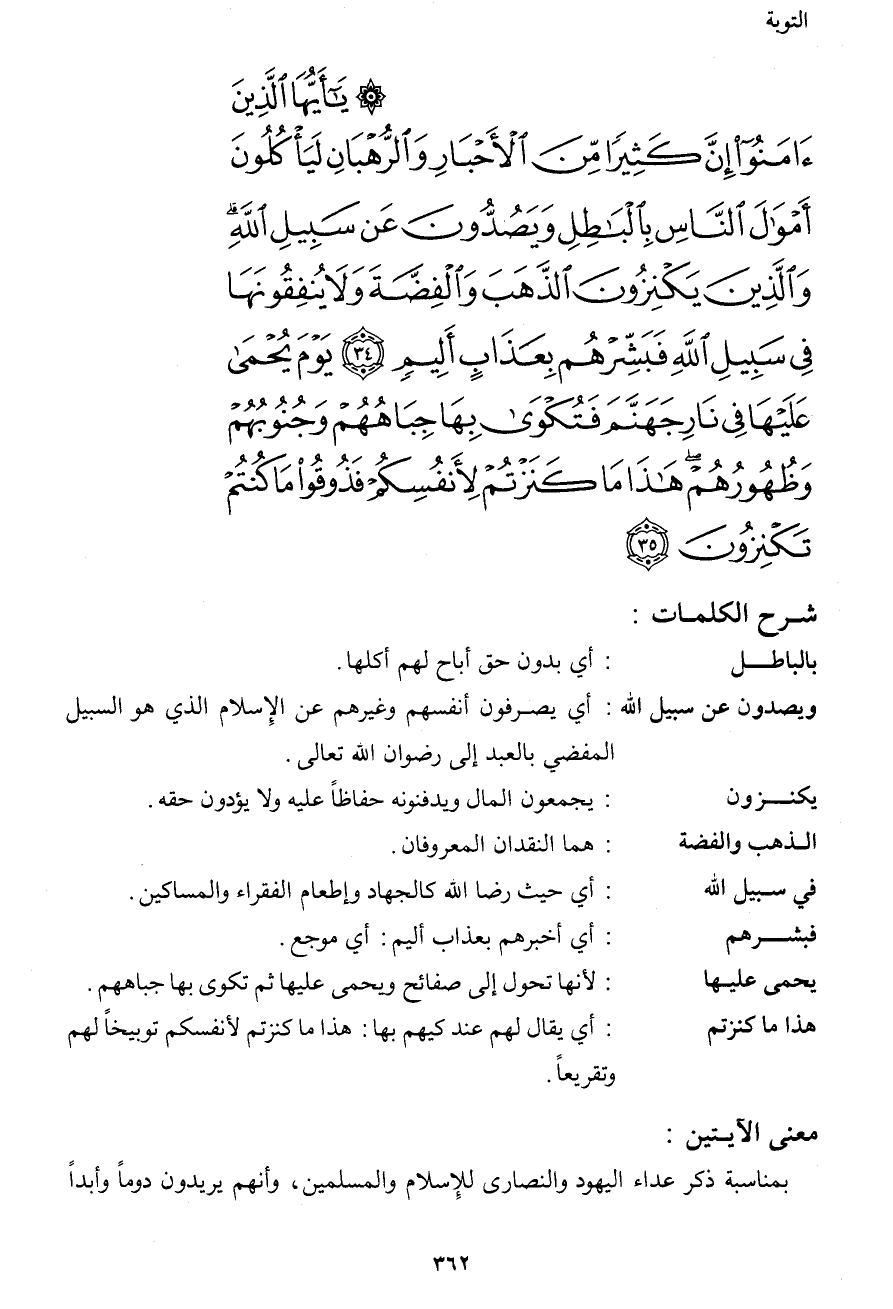 التوبة
۞ يَـٰٓأَيُّهَا ٱلَّذِينَ
ءَامَنُوٓا۟ إِنَّ كَثِيرًا مِّنَ ٱلْأَحْبَارِ وَٱلرُّهْبَانِ لَيَأْكُلُونَ
أَمْوَٰلَ ٱلنَّاسِ بِٱلْبَـٰطِلِ وَيَصُدُّونَ عَن سَبِيلِ ٱللَّهِ ۗ
وَٱلَّذِينَ يَكْنِزُونَ ٱلذَّهَبَ وَٱلْفِضَّةَ وَلَا يُنفِقُونَهَا
فِى سَبِيلِ ٱللَّهِ فَبَشِّرْهُم بِعَذَابٍ أَلِيمٍ ٣٤ يَوْمَ يُحْمَىٰ
عَلَيْهَا فِى نَارِ جَهَنَّمَ فَتُكْوَىٰ بِهَا جِبَاهُهُمْ وَجُنُوبُهُمْ
وَظُهُورُهُمْ ۖ هَـٰذَا مَا كَنَزْتُمْ لِأَنفُسِكُمْ فَذُوقُوا۟ مَا كُنتُمْ
تَكْنِزُونَ ٣٥
شرح الكلمات :
بالباطل : أي بدون حق أباح لهم أكلها.
ويصدون عن سبيل الله : أي يصرفون أنفسهم وغيرهم عن الإسلام الذي هو السبيل
المفضي بالعبد إلى رضوان الله تعالى.
يكنزون : يجمعون المال ويدفنونه حفاظاً عليه ولا يؤدون حقه.
الذهب والفضة : هما النقدان المعروفان.
في سبيل الله : أي حيث رضا الله كالجهاد وإطعام الفقراء والمساكين.
فبشرهم : أي أخبرهم بعذاب أليم: أي موجع.
يحمى عليها : لأنها تحول إلى صفائح ويحمى عليها ثم تكوى بها جباههم.
هذا ما كنزتم : أي يقال لهم عند كيهم بها: هذا ما كنزتم لأنفسكم توبيخاً لهم
وتقريعاً.
معنى الآيتين :
بمناسبة ذكر عداء اليهود والنصارى للإسلام والمسلمين، وأنهم يريدون دوماً وأبداً
٣٦٢